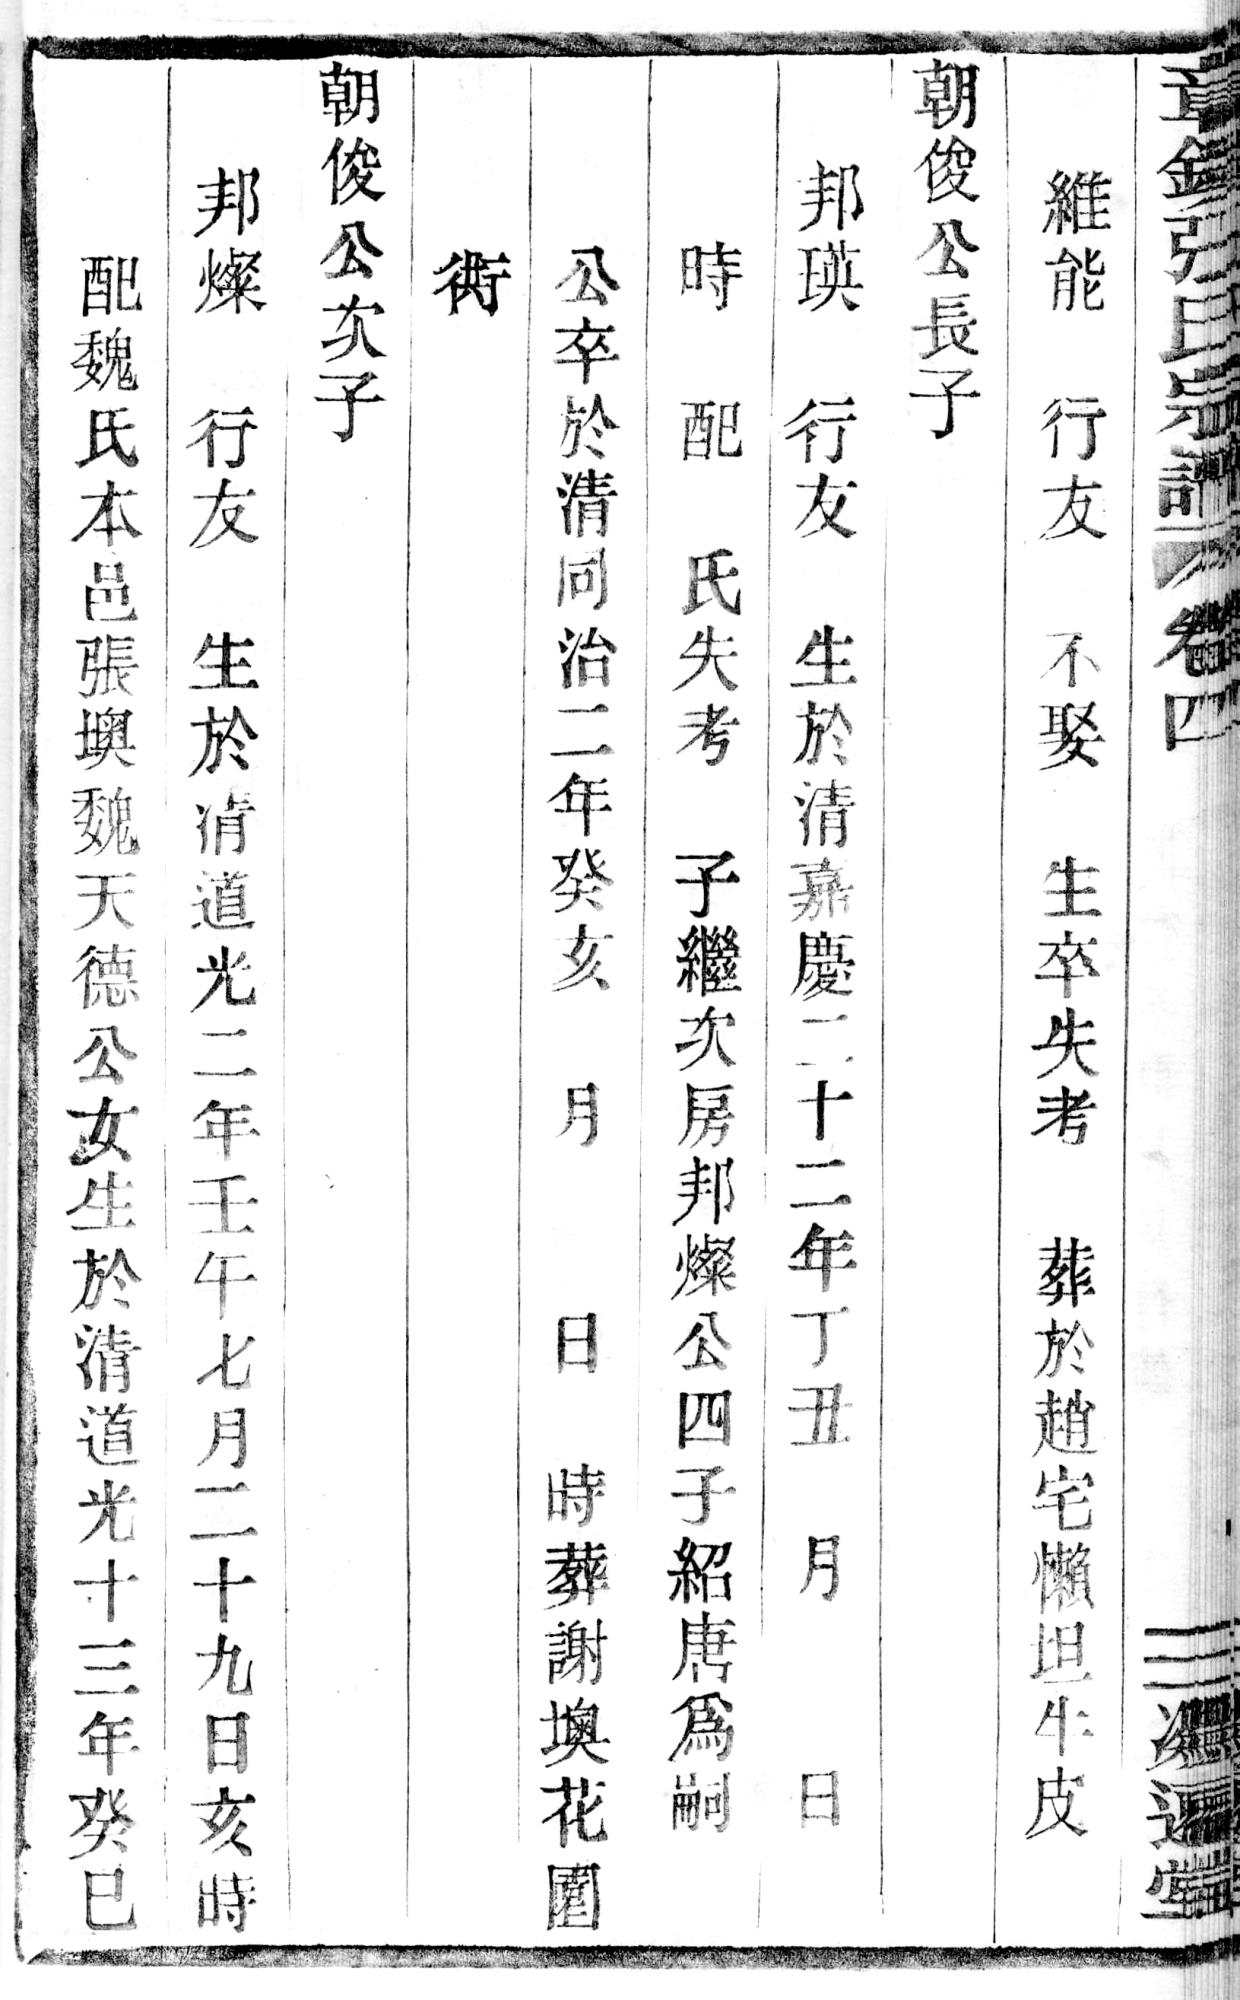 章鎮張氏宗譜 卷四
維能 行友 不娶 生卒失考 葬於趙宅懶坦牛皮
朝俊公長子
邦瑛 行友 生於清嘉慶二十二年丁丑 月 日
時 配 氏失考 子繼次房邦燦公四子紹唐爲嗣
公卒於清同治二年癸亥 月 日 時葬謝墺花園
衖
朝俊公次子
邦燦 行友 生於清道光二年壬午七月二十九日亥時
配魏氏本邑張墺魏天德公女生於清道光十三年癸巳